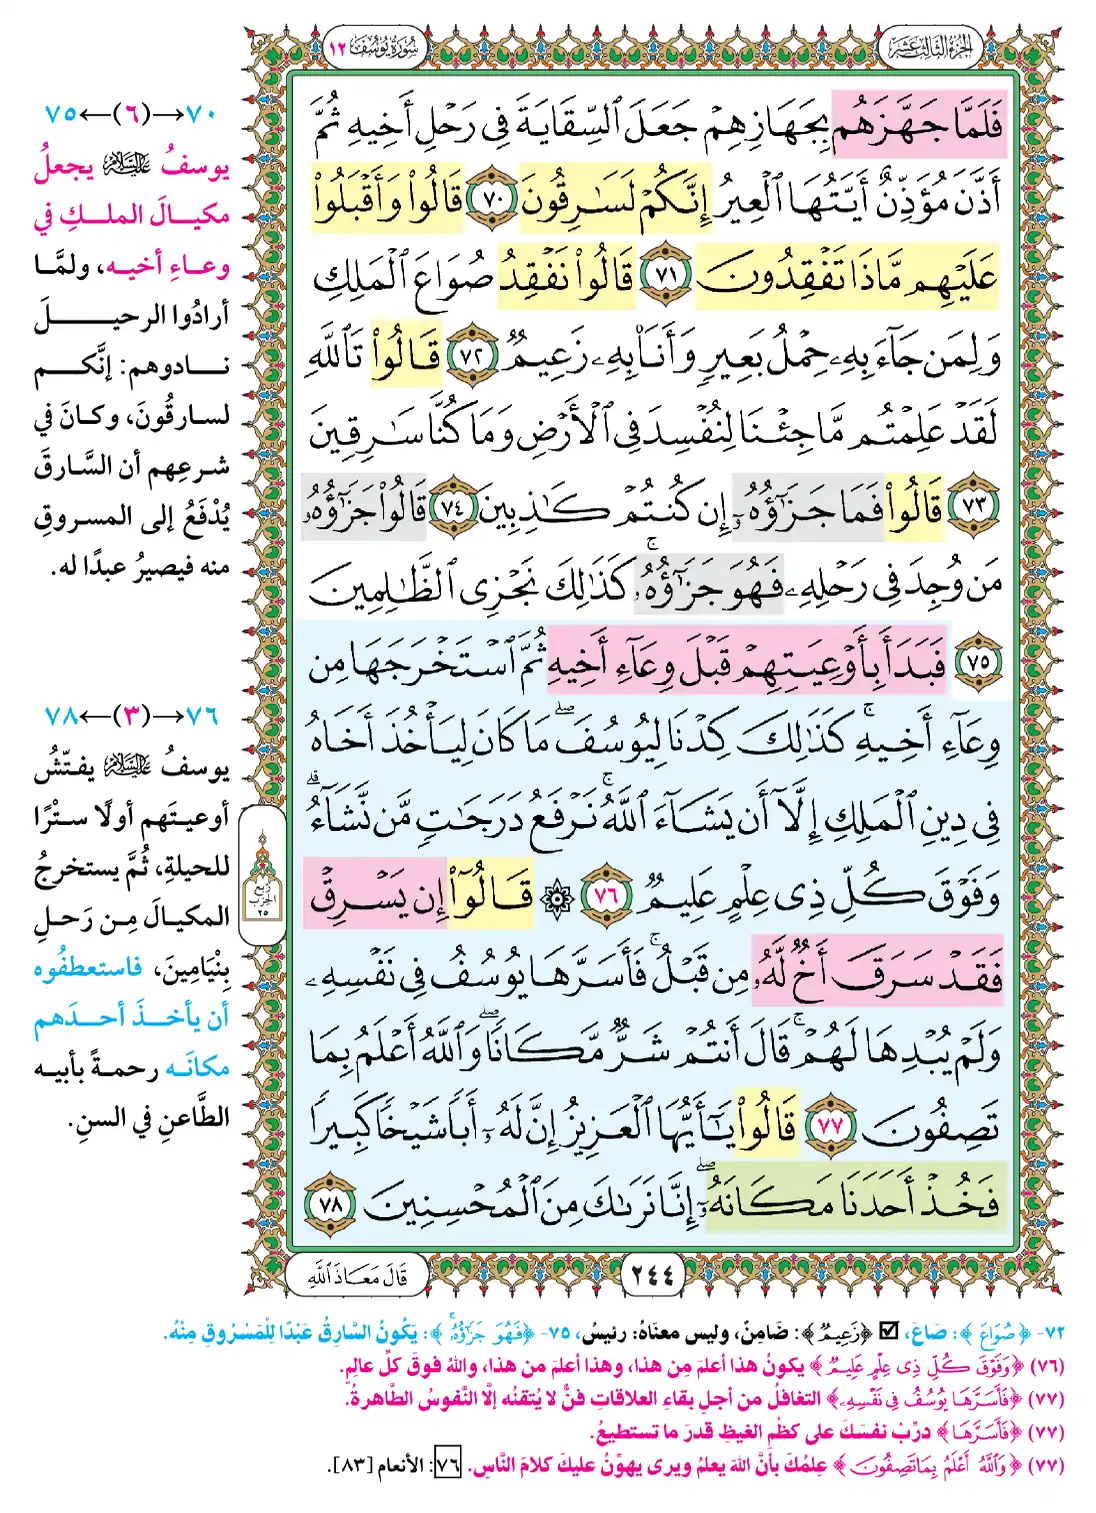 الجزء الثالث عشر
سورة يوسف ١٢
فَلَمَّا جَهَّزَهُم بِجَهَازِهِمْ جَعَلَ ٱلسِّقَايَةَ فِى رَحْلِ أَخِيهِ ثُمَّ
أَذَّنَ مُؤَذِّنٌ أَيَّتُهَا ٱلْعِيرُ إِنَّكُمْ لَسَـٰرِقُونَ ٧٠ قَالُوا۟ وَأَقْبَلُوا۟
عَلَيْهِم مَّاذَا تَفْقِدُونَ ٧١ قَالُوا۟ نَفْقِدُ صُوَاعَ ٱلْمَلِكِ
وَلِمَن جَآءَ بِهِۦ حِمْلُ بَعِيرٍ وَأَنَا۠ بِهِۦ زَعِيمٌ ٧٢ قَالُوا۟ تَٱللَّهِ
لَقَدْ عَلِمْتُم مَّا جِئْنَا لِنُفْسِدَ فِى ٱلْأَرْضِ وَمَا كُنَّا سَـٰرِقِينَ
٧٣ قَالُوا۟ فَمَا جَزَٰٓؤُهُۥٓ إِن كُنتُمْ كَـٰذِبِينَ ٧٤ قَالُوا۟ جَزَٰٓؤُهُۥ
مَن وُجِدَ فِى رَحْلِهِۦ فَهُوَ جَزَٰٓؤُهُۥ ۚ كَذَٰلِكَ نَجْزِى ٱلظَّـٰلِمِينَ
٧٥ فَبَدَأَ بِأَوْعِيَتِهِمْ قَبْلَ وِعَآءِ أَخِيهِ ثُمَّ ٱسْتَخْرَجَهَا مِن
وِعَآءِ أَخِيهِ ۚ كَذَٰلِكَ كِدْنَا لِيُوسُفَ ۖ مَا كَانَ لِيَأْخُذَ أَخَاهُ
فِى دِينِ ٱلْمَلِكِ إِلَّآ أَن يَشَآءَ ٱللَّهُ ۚ نَرْفَعُ دَرَجَـٰتٍ مَّن نَّشَآءُ ۗ
وَفَوْقَ كُلِّ ذِى عِلْمٍ عَلِيمٌ ٧٦ ۞ قَالُوٓا۟ إِن يَسْرِقْ
فَقَدْ سَرَقَ أَخٌ لَّهُۥ مِن قَبْلُ ۚ فَأَسَرَّهَا يُوسُفُ فِى نَفْسِهِۦ
وَلَمْ يُبْدِهَا لَهُمْ ۚ قَالَ أَنتُمْ شَرٌّ مَّكَانًا ۖ وَٱللَّهُ أَعْلَمُ بِمَا
تَصِفُونَ ٧٧ قَالُوا۟ يَـٰٓأَيُّهَا ٱلْعَزِيزُ إِنَّ لَهُۥٓ أَبًا شَيْخًا كَبِيرًا
فَخُذْ أَحَدَنَا مَكَانَهُۥٓ ۖ إِنَّا نَرَىٰكَ مِنَ ٱلْمُحْسِنِينَ ٧٨
٢٤٤
قَالَ مَعَاذَ اللَّهِ
٧٠→(٦)←٧٥
يوسفُ عليه السلام يجعلُ
مكيالَ الملكِ في
وعاءِ أخيه، ولمَّا
أرادُوا الرحيلَ
نادوهم: إنَّكم
لسارقُونَ، وكانَ في
شرعِهم أن السَّارقَ
يُدْفَعُ إلى المسروقِ
منه فيصيرُ عبدًا له.
٧٦→(٣)←٧٨
يوسفُ عليه السلام يفتّشُ
أوعيتَهم أولًا سترًا
للحيلةِ، ثُمَّ يستخرجُ
المكيالَ مِن رَحلِ
بِنْيَامِينَ، فاستعطفُوه
أن يأخذَ أحدَهم
مكانَه رحمةً بأبيه
الطَّاعنِ في السنِ.
ربع
الحزب
٢٥
٧٢- ﴿صُوَاعَ﴾: صَاعَ، ☑ ﴿زَعِيمٌ﴾: ضَامِنٌ، وليس معنَاهُ: رئيسٌ، ٧٥- ﴿فَهُوَ جَزَٰٓؤُهُۥ ۚ﴾: يَكُونُ السَّارِقُ عَبْدًا لِلْمَسْرُوقِ مِنْهُ.
(٧٦) ﴿وَفَوْقَ كُلِّ ذِى عِلْمٍ عَلِيمٌ﴾ يكونُ هذا أعلمَ مِن هذا، وهذا أعلمَ من هذا، واللهُ فوقَ كلِّ عالمٍ.
(٧٧) ﴿فَأَسَرَّهَا يُوسُفُ فِى نَفْسِهِۦ﴾ التغافلُ من أجلِ بقاءِ العلاقاتِ فنٌّ لا يُتقنُه إلَّا النَّفوسُ الطَّاهرةُ.
(٧٧) ﴿فَأَسَرَّهَا﴾ درِّبْ نفسَكَ على كظْمِ الغيظِ قدرَ ما تستطيعُ.
(٧٧) ﴿وَٱللَّهُ أَعْلَمُ بِمَا تَصِفُونَ﴾ علمُكَ بأنَّ اللهَ يعلمُ ويرى يهوِّنُ عليكَ كلامَ النَّاسِ. ٧٦: الأنعام [٨٣].